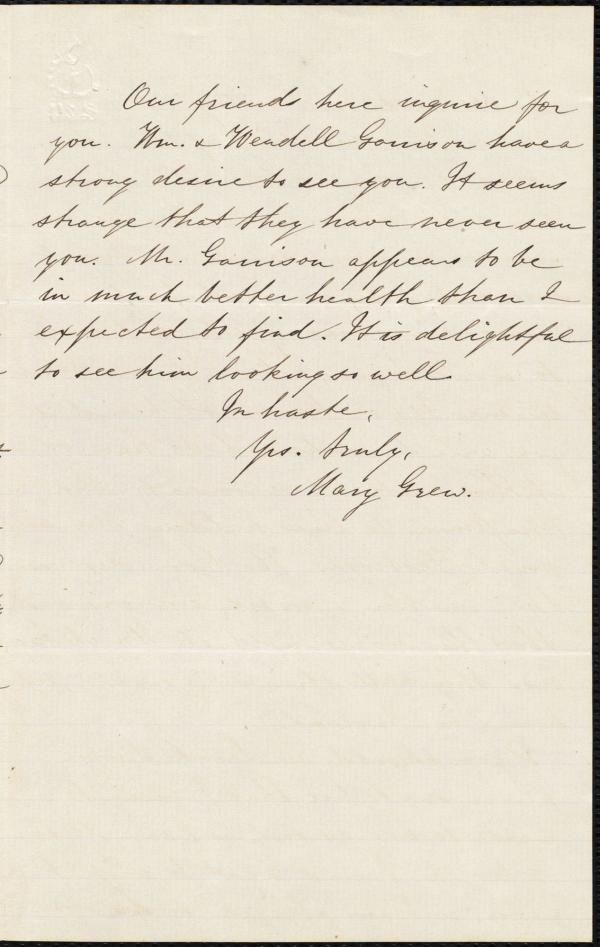 Our friends here inquire for
you. Wm. & Wendell Garrison have a
strong desire to see you. It seems
strange that they have never seen
you. Mr. Garrison appears to be
in much better health than I
expected to find. It is delightful
to see him looking so well
In haste,
Yrs. truly,
Mary Grew.